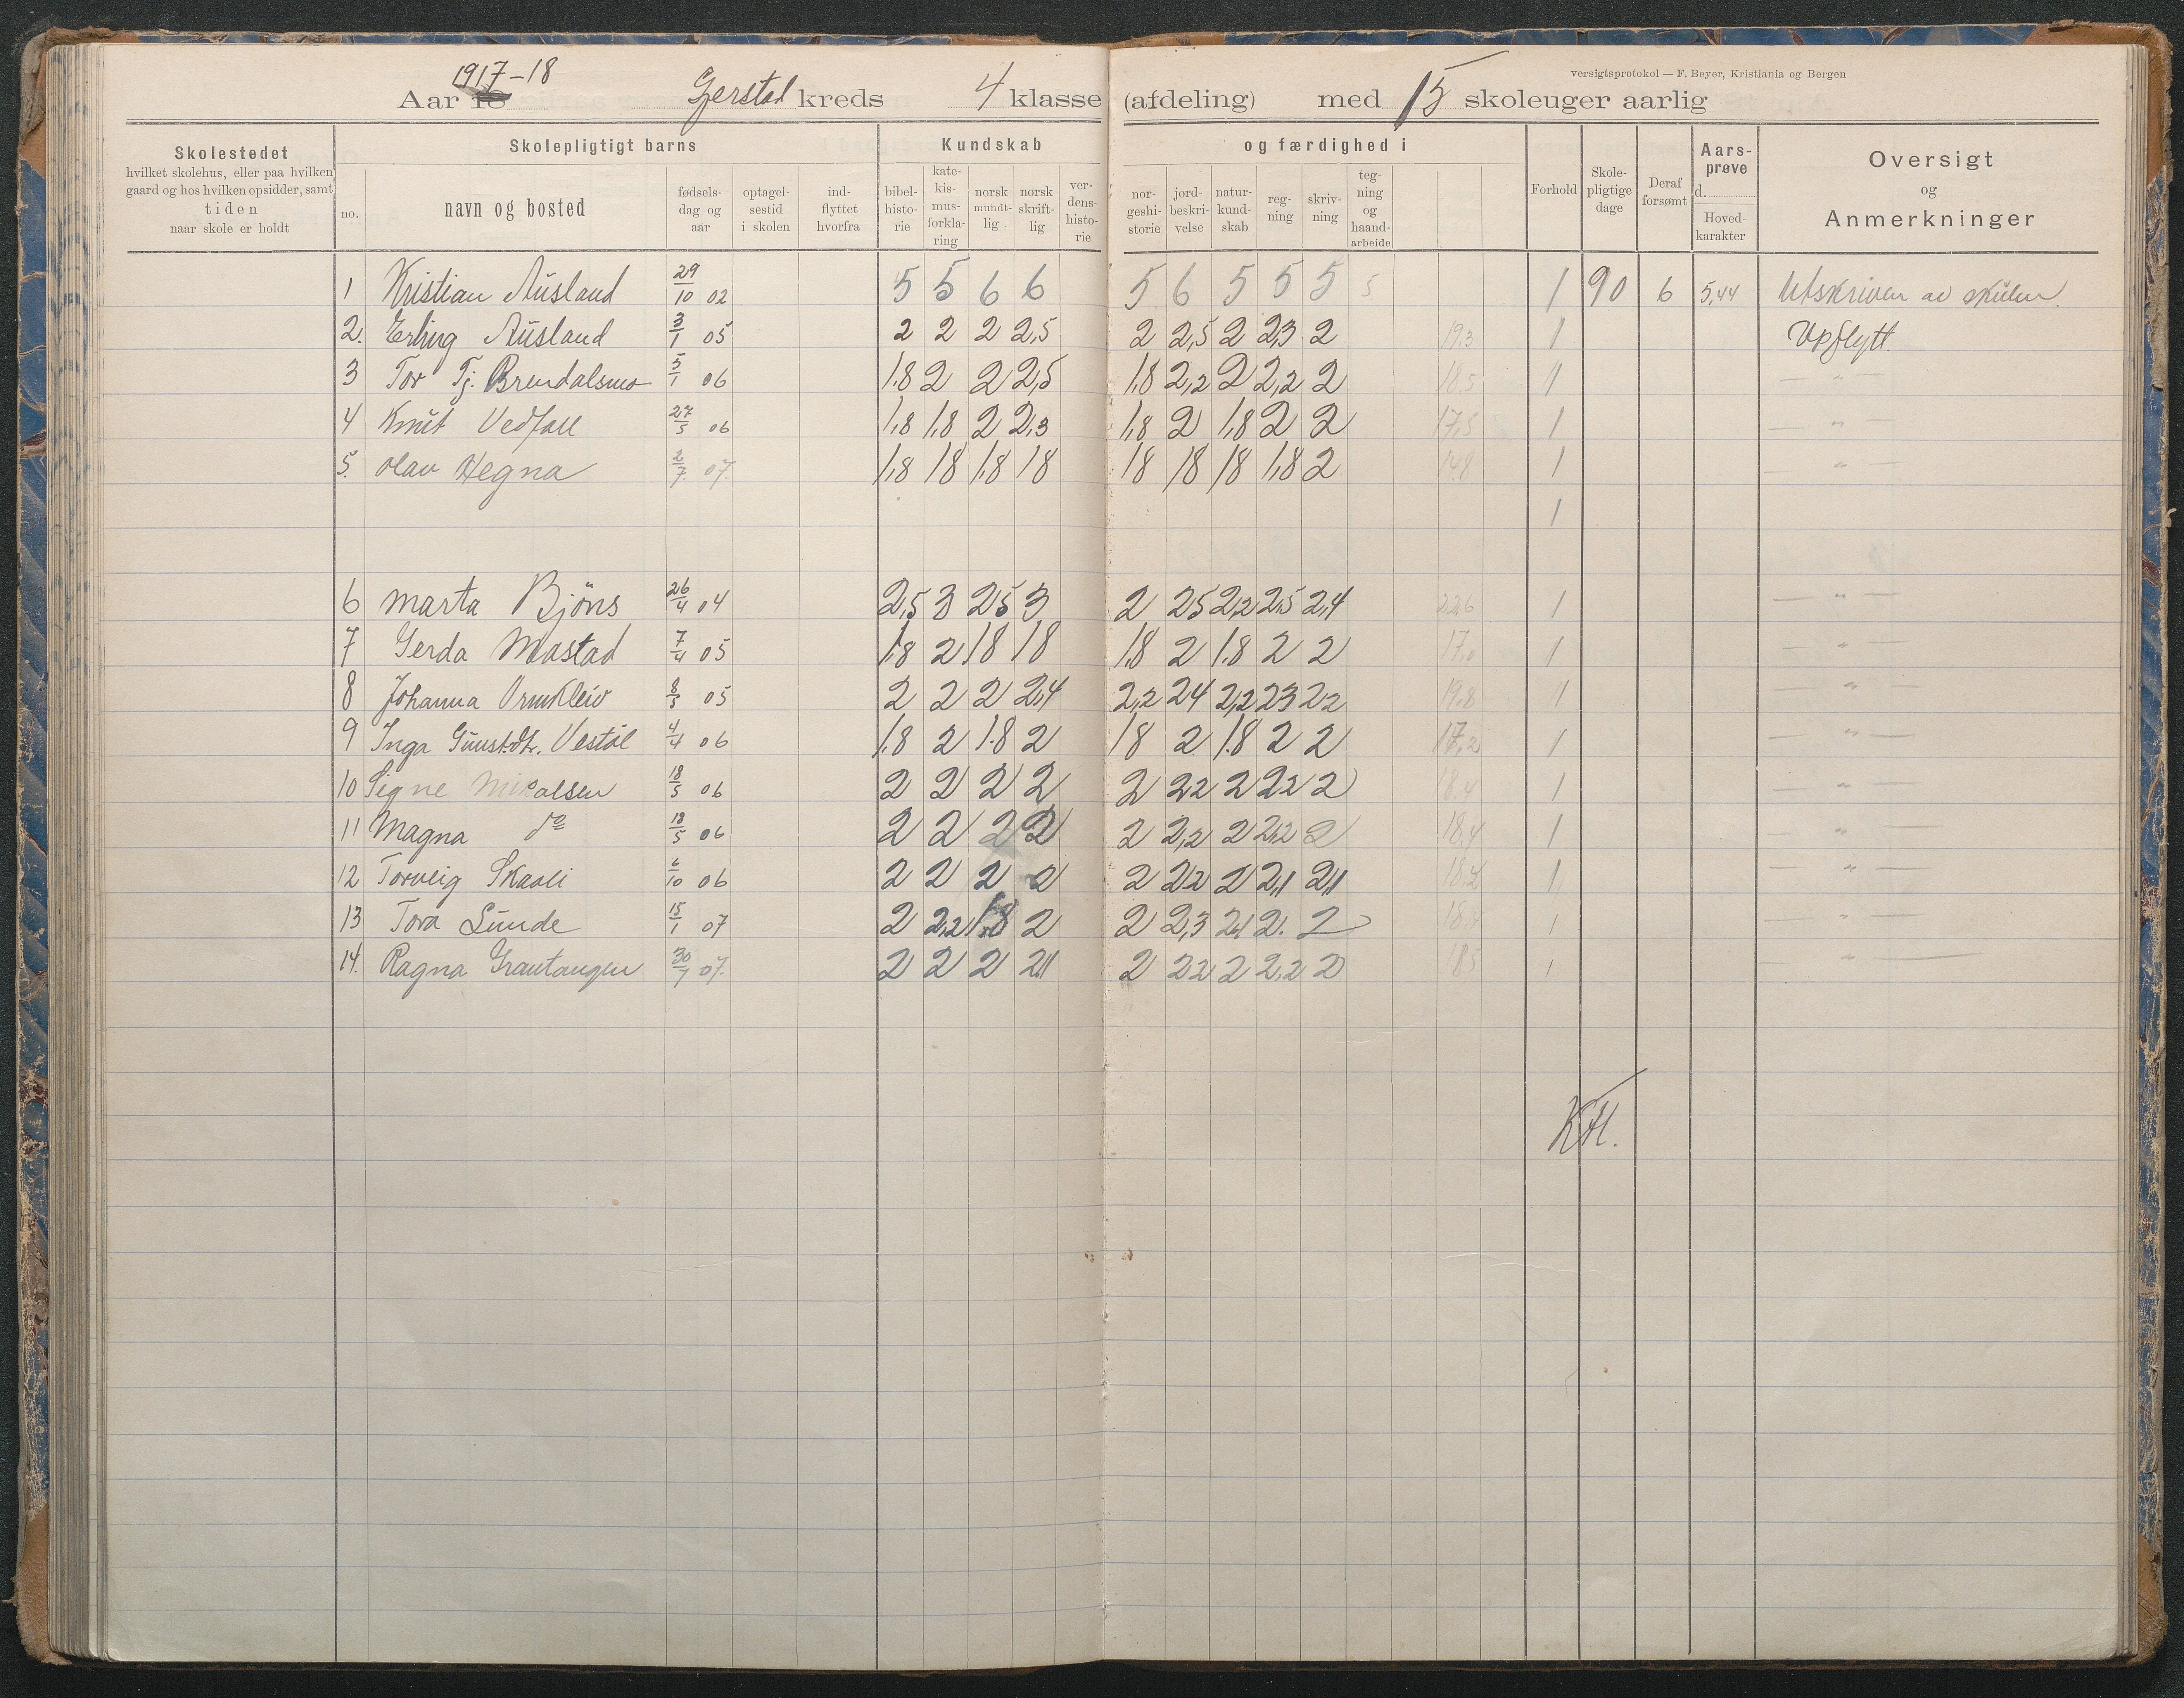 versigtsprotokol — F. Beyer, Kristiania og Bergen
1917-18
Aar 18 Gerstad kreds 4 klasse (afdeling) med 15 skoleuger aarlig
Skolestedet
hvilket skolehus, eller paa hvilken
gaard og hos hvilken opsidder, samt
tiden
naar skole er holdt
Skolepligtigt barns
no.
navn og bosted
fødsels-
dag og
aar
optagel-
sestid
i skolen
ind-
flyttet
hvorfra
Kundskab
bibel-
histo-
rie
kate-
kis-
mus-
forkla-
ring
norsk
mundt-
lig
norsk
skrift-
lig
ver-
dens-
histo-
rie
og færdighed i
nor-
geshi-
storie
jord-
beskri-
velse
natur-
kund-
skab
reg-
ning
skriv-
ning
teg-
ning
og
haand-
arbeide
Forhold
Skole-
pligtige
dage
Deraf
forsømt
Aars-
prøve
d.
Hoved-
karakter
Oversigt
og
Anmerkninger
1 Kristian Ausland 29/10 02 5 5 6 6 5 6 5 5 5 5 1 90 6 5,44 Utskriven av skulen.
2. Erling Ausland 3/1 05 2 2 2 2,5 2 2,5 2 2,3 2 19,3 1 Upflytt.
3 Tov Tj. Brendalsmo 5/1 06 1,8 2 2 2,5 1,8 2,2 2 2,2 2 18,5 1 — " —
4 Knut Vedfall 27/5 06 1,8 1,8 2 2,3 1,8 2 1,8 2 2 17,5 1 — " —
5. Olav Hegna 2/7 07. 1,8 18 1,8 18 18 18 18 1,8 2 14,8 1 — " —
1
6 Marta Bjöns 26/4 04 2,5 3 25 3 2 25 2,2 2,5 2,4 22,6 1 — " —
7 Gerda Mostad 7/4 05 1,8 2 18 18 1,8 2 1.8 2 2 17,0 1 — " —
8 Johanna Ormkleiv 8/5 05 2 2 2 2,4 2,2 24 2,2 23 22 19.8 1 — " —
9 Inga Gunst.dt. Vestöl 4/4 06 1.8 2 1.8 2 18 2 1.8 2 2 17,2 1 — " —
10 Signe Mikalsen 18/5 06 2 2 2 2 2 22 2 22 2 18,4 1 — " —
11 Magna do 18/5 06 2 2 2 2 2 2,2 2 2,2 2 18,4 1 — " —
12 Torveig Skaali 6/10 06 2 2 2 2 2 22 2 2,1 2,1 18,2 1 — " —
13 Tora Lunde 15/1 07 2 2,2 1.8 2 2 2,3 2,1 2. 2 18,4 1 — " —
14. Ragna Grautangen 30/7 07. 2 2 2 2,1 2 22 2 2,2 2 185 1 — " —
KH.